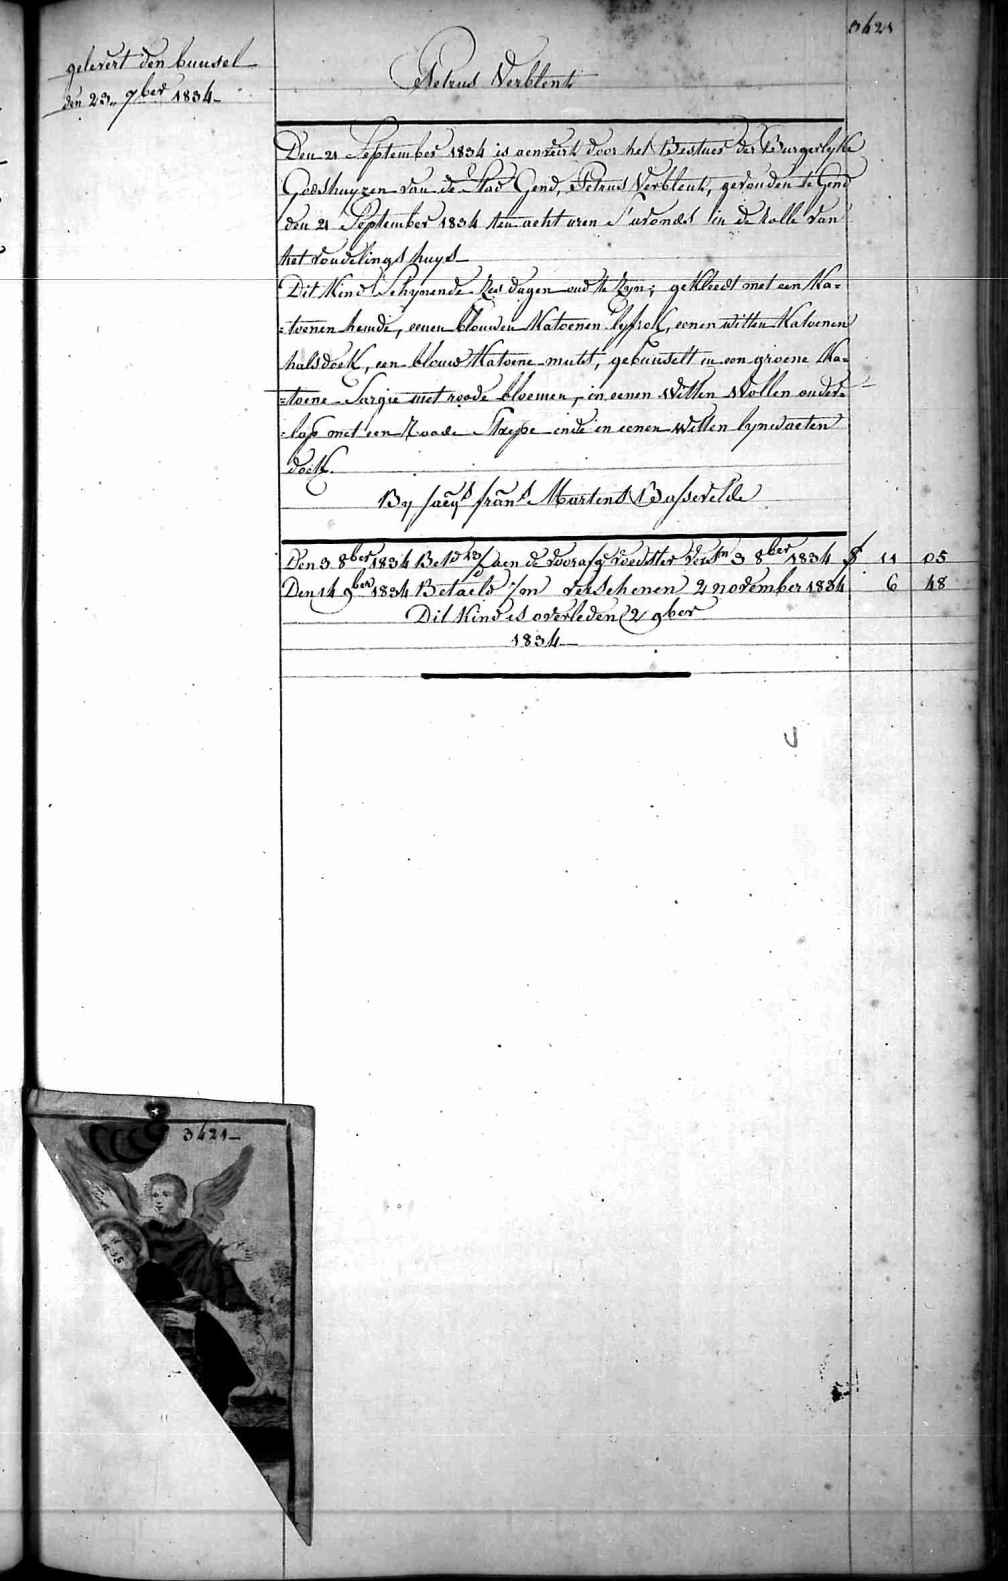 3421
gelevert den bunsel
den 23 7ber 1834
Petrus Verblent
Den 21 September 1834 is aenveirt door het Bestuer der Burgerlyke
Godshuyzen van de Stad Gend, Petrus Verblent, gevonden te Gend
den 21 September 1834 ten acht uren S'avonds in de rolle van
het vondelings huys
Dit Kind Schynende zes dagen oud te zyn; gekleedt met een Ka=
=toenen hemde, eenen blouwen Katoenen lyfrok, eenen witten Katoenen
halsdoek, een blouw Katoene muts, gebunselt in een groene Ka=
=toene Sargie met roode bloemen, in eenen Witten Wollen onder=
=lap met een Roode Strepe ende in eenen Witten lynwaeten
doek.
By Jacqs frans Martens Bassevelde
Den 3 8ber 1834 aen de voedster 3 8ber 1834 11 05
Den 14 9ber 1834 Betaeld verschenen 2 november 1834 6 48
Dit Kind is overleden 2 9ber
1834
3421